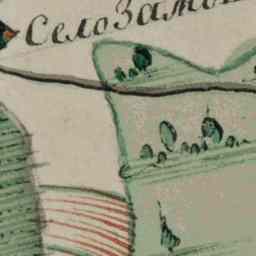 Село Замы